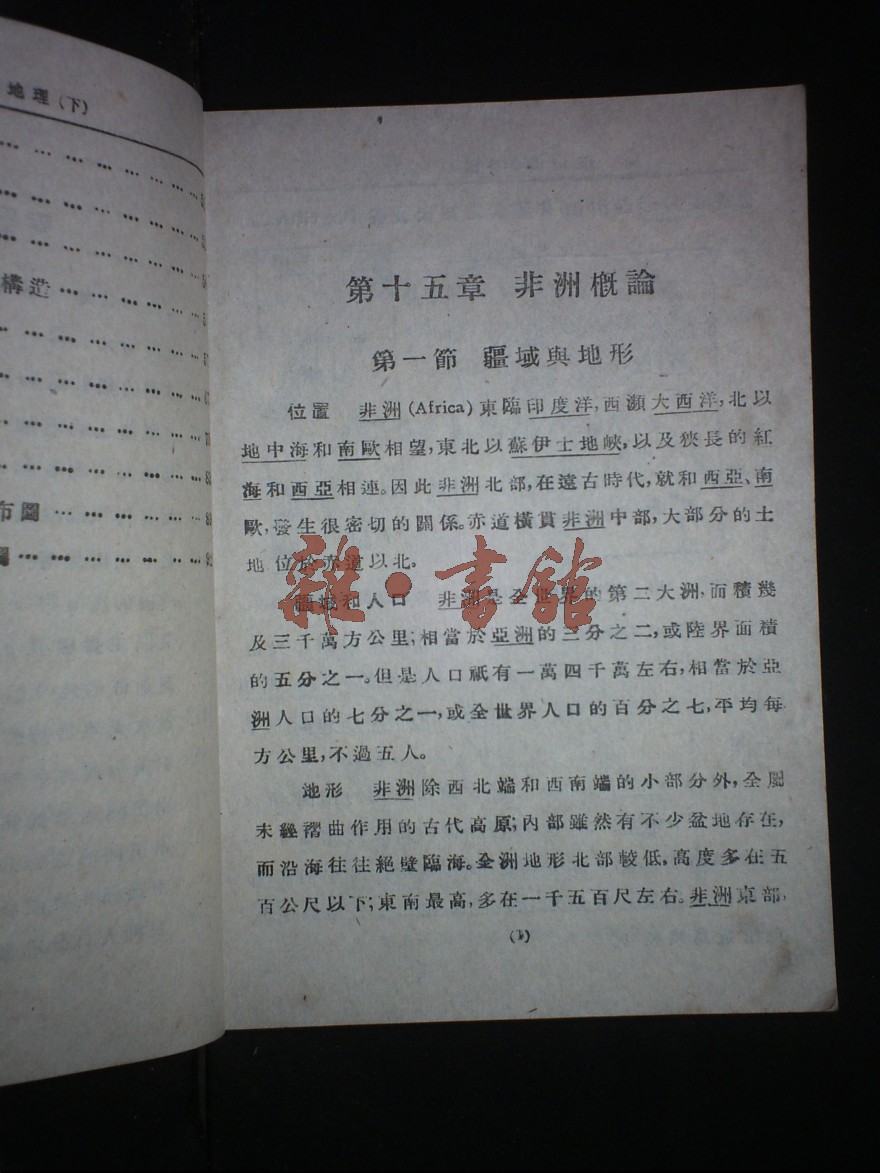 地理(下)
構造
布圖
圖
第十五章 非洲概論
第一節 疆域與地形
位置 非洲(Africa)東臨印度洋,西瀕大西洋,北以
地中海和南歐相望,東北以蘇伊士地峽,以及狹長的紅
海和西亞相連。因此非洲北部,在遠古時代,就和西亞、南
歐,發生很密切的關係。赤道橫貫非洲中部,大部分的土
地位於赤道以北。
疆域和人口 非洲是全世界的第二大洲,面積幾
及三千萬方公里;相當於亞洲的三分之二,或陸界面積
的五分之一。但是人口祇有一萬四千萬左右,相當於亞
洲人口的七分之一,或全世界人口的百分之七,平均每
方公里,不過五人。
地形 非洲除西北端和西南端的小部分外,全屬
未經褶曲作用的古代高原;內部雖然有不少盆地存在,
而沿海往往絕壁臨海。全洲地形北部較低,高度多在五
百公尺以下;東南最高,多在一千五百尺左右。非洲東部,
(1)
雜·書館